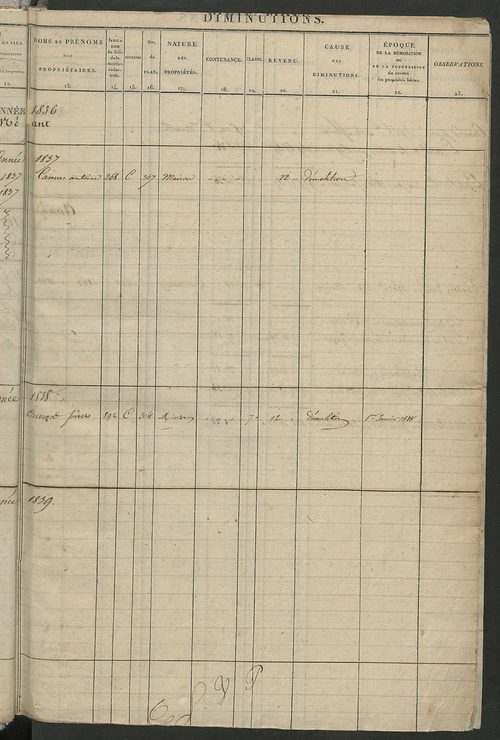 DIMINUTIONS.
NOMS ET PRÉNOMS DES PROPRIÉTAIRES. 13.
14.
SECTION 15.
Nos. du PLAN. 16.
NATURE DES PROPRIÉTÉS. 17.
CONTENANCE. 18.
CLASSE. 19.
REVENU. 20.
CAUSE DES DIMINUTIONS. 21.
ÉPOQUE DE LA DÉMOLITION OU DE LA SUPPRESSION du revenu des propriétés bâties. 22.
OBSERVATIONS. 23.
ANNÉE 1836
Néant
Année 1837
1837 Camus antoine 268 C 307 Maison 22 démolition
1837
1838
frères 292 C 304 Maison 7e 12 démolition 1er Janvier 1838
1839.